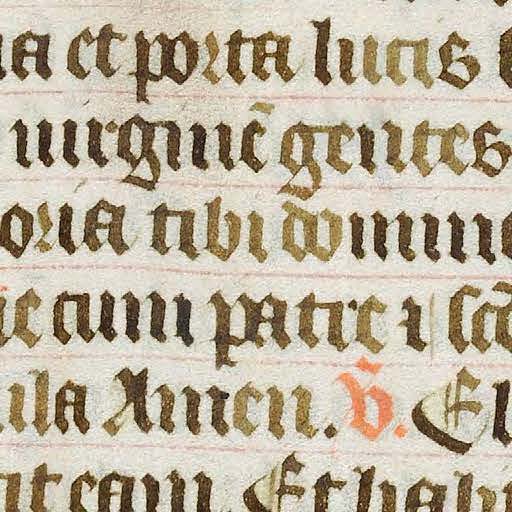 na et porta lucis
uirginē gentes
oria tibi domine
cum patre ⁊ scō
ula Amen. V̄. El
it eam Et hab